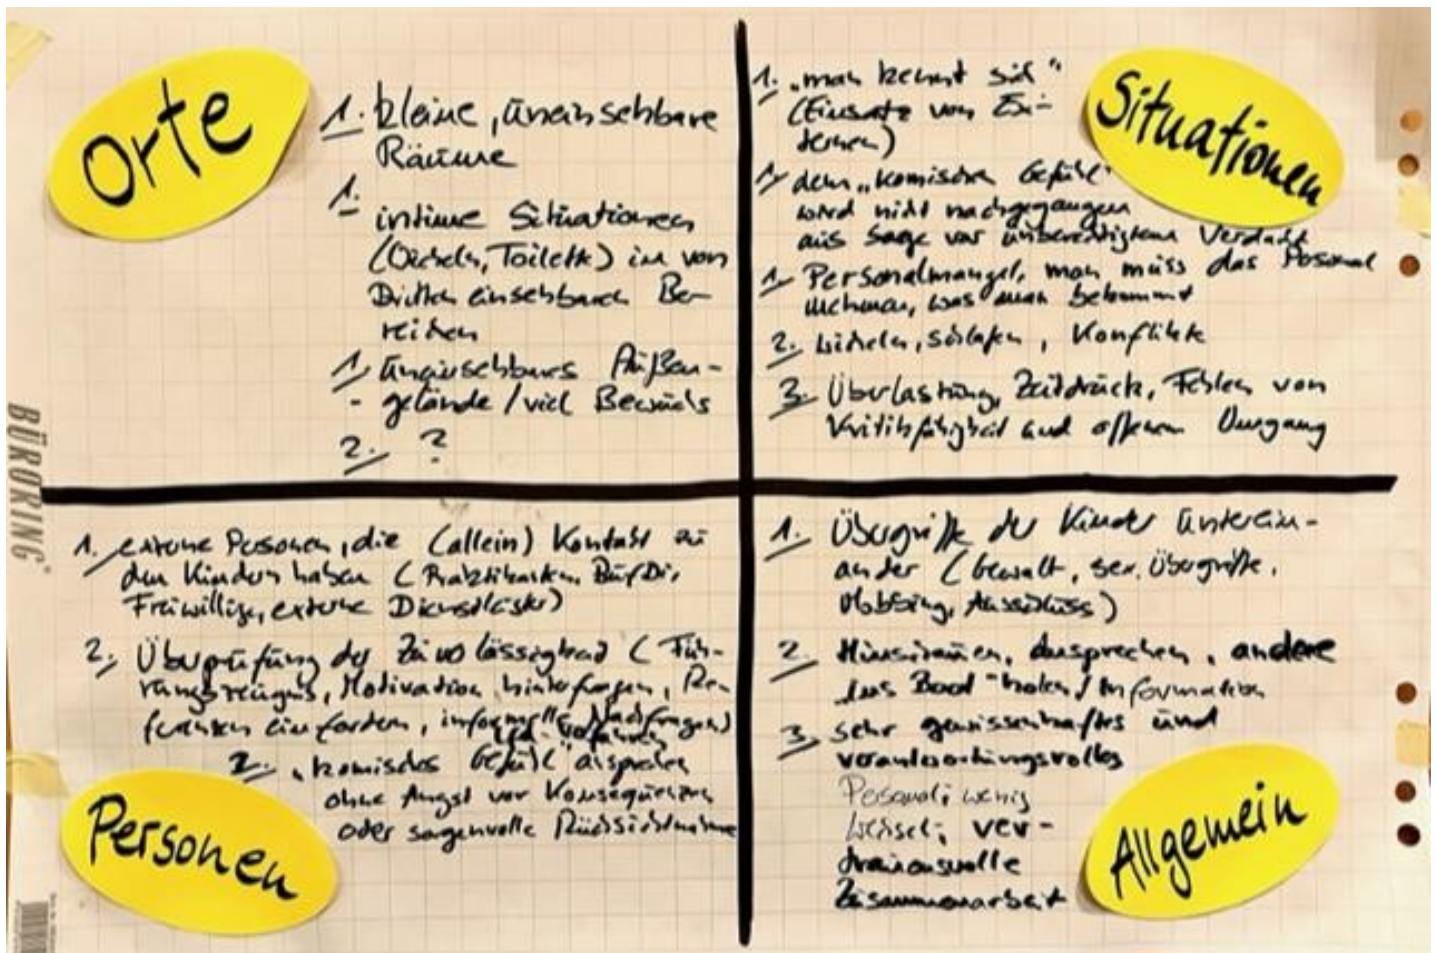 Orte
1. kleine, uneinsehbare
Räume
1. intime Situationen
(Wickeln, Toilette) in von
Dritten einsehbaren Be-
reichen
1. uneinsehbares Außen-
- gelände / viel Bewuchs
2. ?
Situationen
1. "man kennt sich"
(Einsatz von Ex-
ternen)
1. dem "komischen Gefühl"
wird nicht nachgegangen
aus Sorge vor unberechtigtem Verdacht
1. Personalmangel, man muss das Personal
nehmen, was man bekommt
2. Wickeln, Schlafen, Konflikte
3. Überlastung, Zeitdruck, Fehlen von
Kritikfähigkeit und offenem Umgang
1. externe Personen, die (allein) Kontakt zu
den Kindern haben (Praktikanten, BufDi,
Freiwillige, externe Dienstleister)
2. Überprüfung der Zuverlässigkeit (Füh-
rungszeugnis, Motivation hinterfragen, Re-
ferenzen einfordern, informelle Nachfragen)
2. "komisches Gefühl" ansprechen
ohne Angst vor Konsequenzen
oder sorgenvolle Rücksichtnahme
Personen
1. Übergriffe der Kinder unterein-
ander (Gewalt, sex. Übergriffe,
Mobbing, Ausschluss)
2. Hinschauen, ansprechen, andere
"ins Boot" holen / Information
3. sehr gewissenhaftes und
verantwortungsvolles
Personal; wenig
Wechsel; ver-
trauensvolle
Zusammenarbeit
Allgemein
BÜROKING